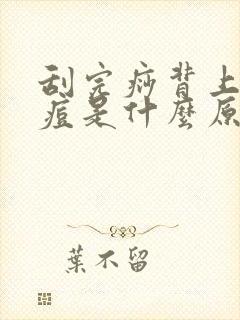 刮完痧背上
痘是什麼原
葉不留